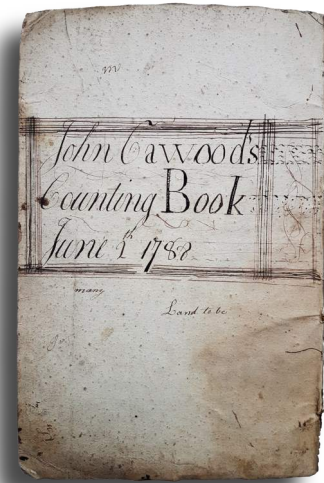 m
John Cawood's
Counting Book
June 1th 1788
many
Land to be